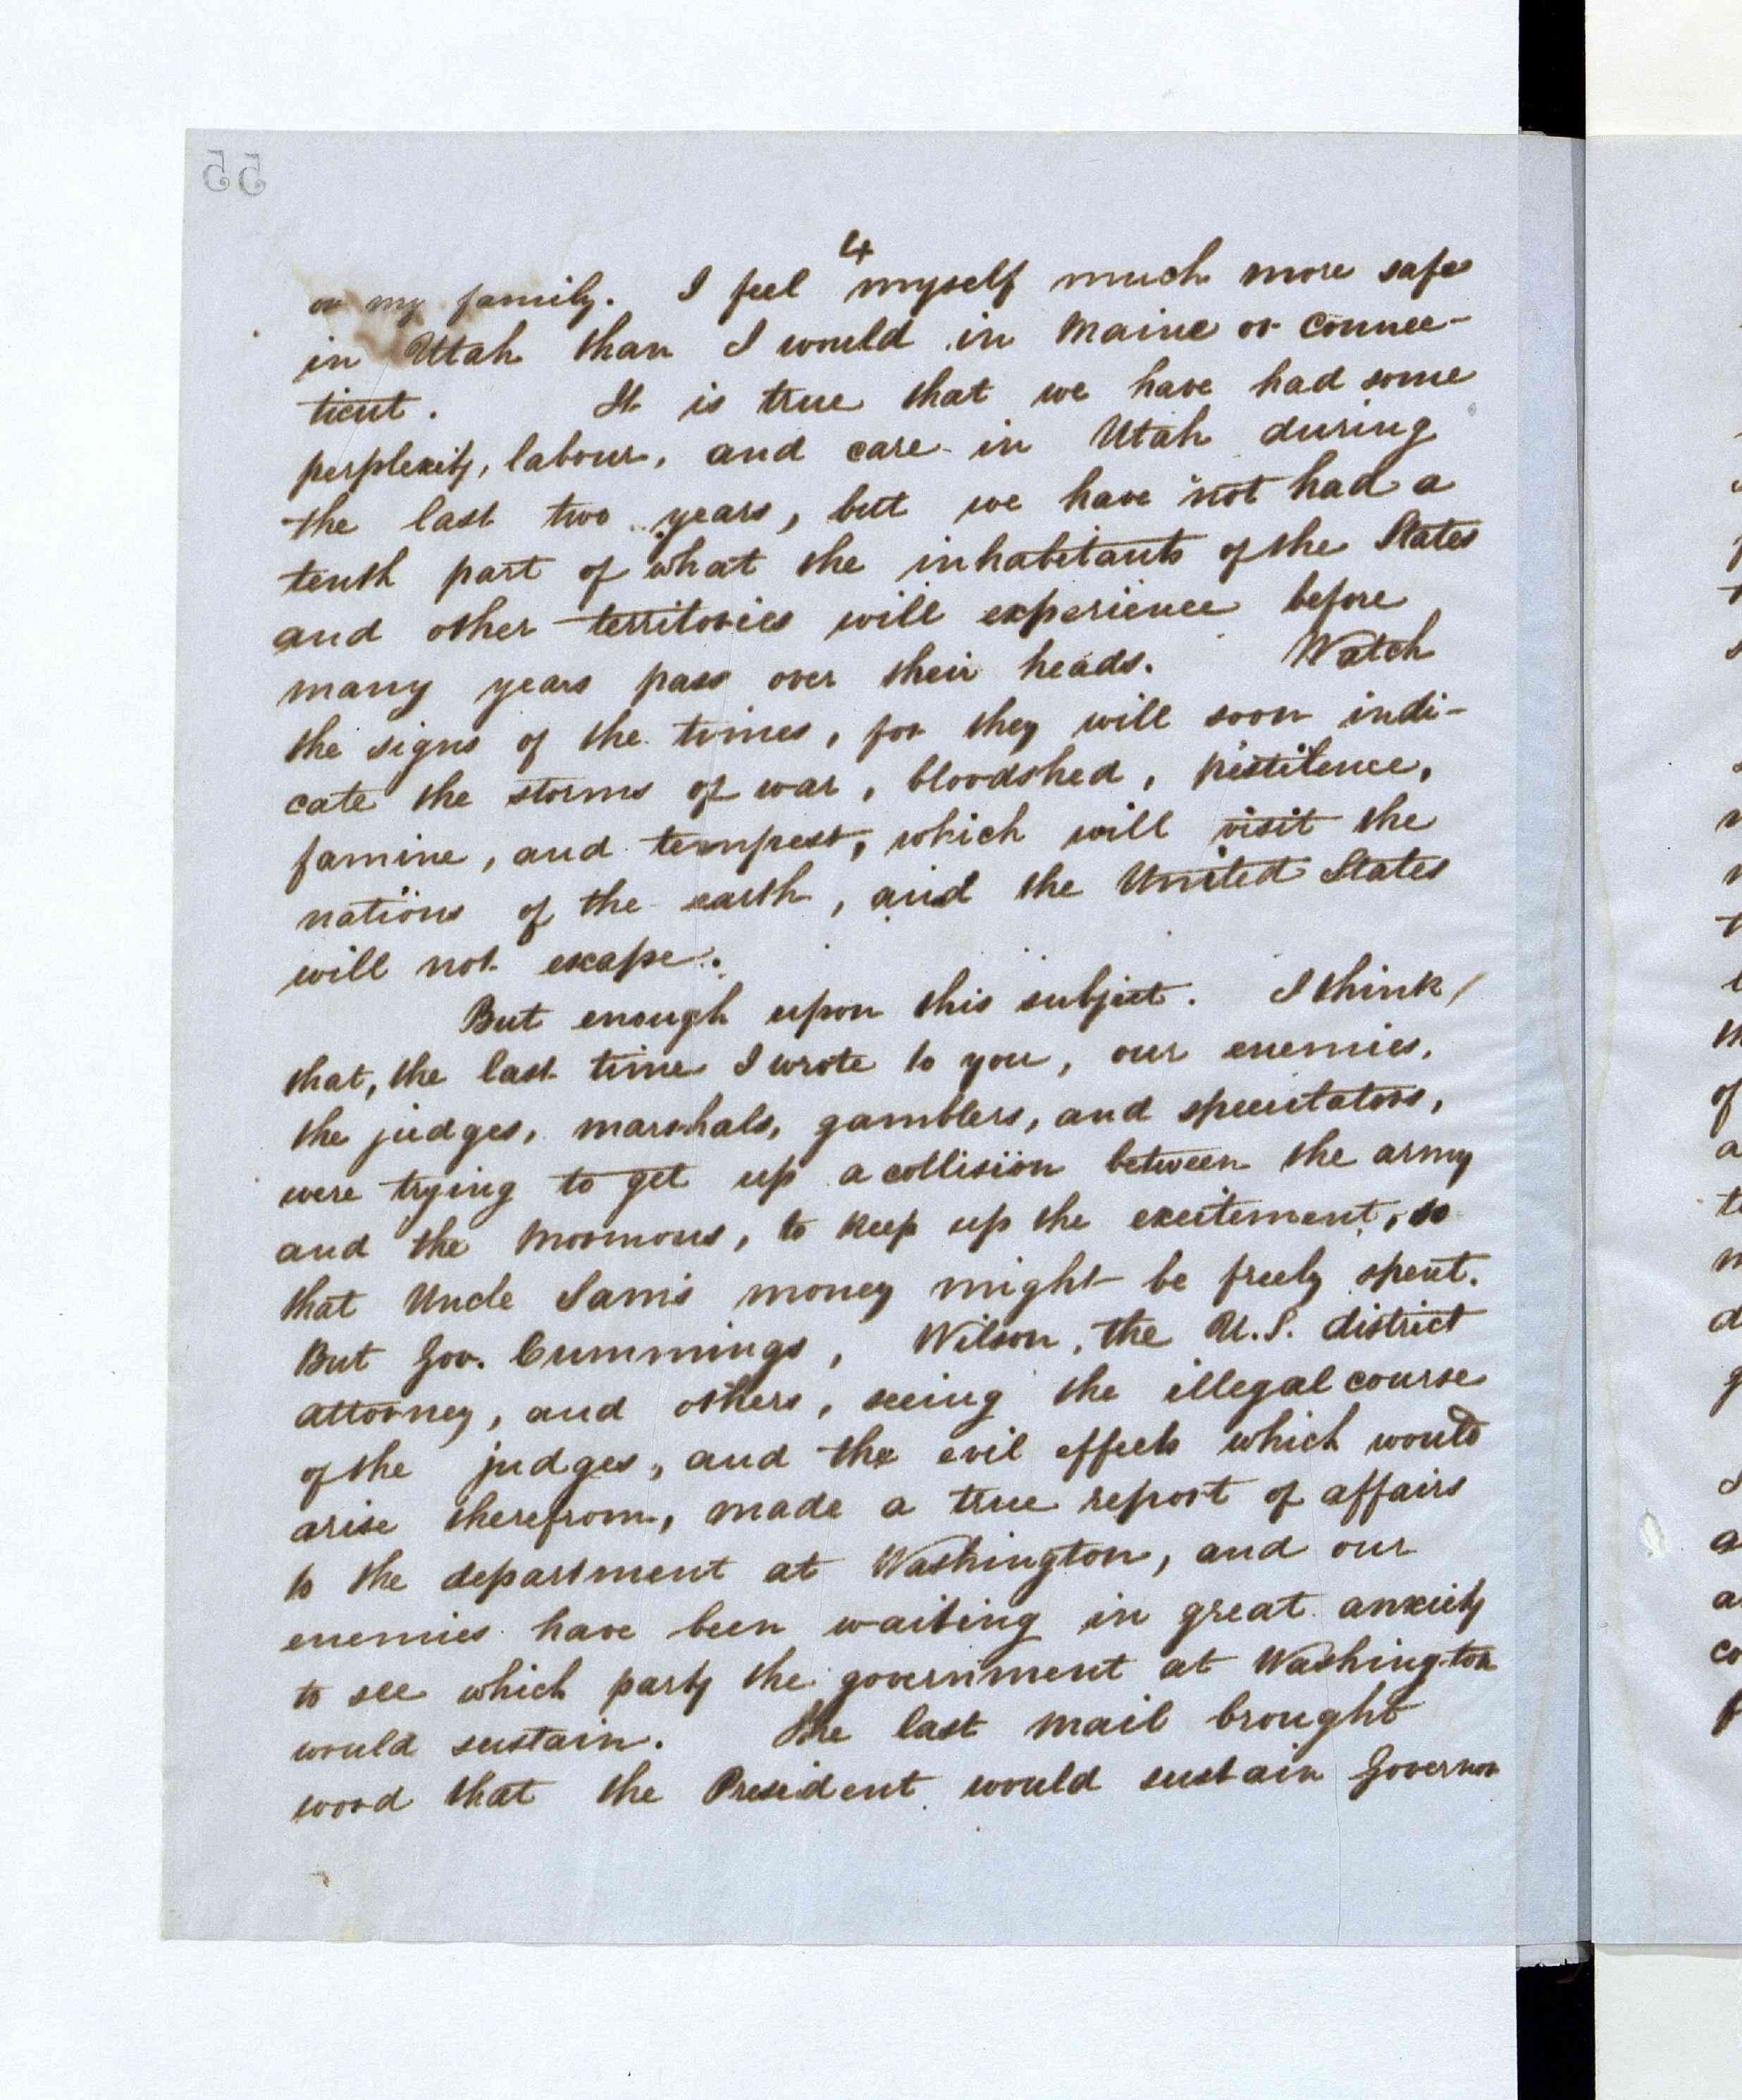 55
4
or my family. I feel myself much more safe
in Utah than I would in Maine or Connec-
ticut. It is true that we have had some
perplexity, labour, and care in Utah during
the last two years, but we have not had a
tenth part of what the inhabitants of the States
and other territories will experience before
many years pass over their heads. Watch
the signs of the times, for they will soon indi-
cate the storms of war, bloodshed, pestilence,
famine, and tempest, which will visit the
nations of the earth, and the United States
will not escape.
But enough upon this subject. I think
that, the last time I wrote to you, our enemies,
the judges, marshals, gamblers, and speculators,
were trying to get up a collision between the army
and the Mormons, to keep up the excitement, so
that Uncle Sam's money might be freely spent.
But Gov. Cummings, Wilson, the U.S. district
attorney, and others, seeing the illegal course
of the judges, and the evil effects which would
arise therefrom, made a true report of affairs
to the department at Washington, and our
enemies have been waiting in great anxiety
to see which party the government at Washington
would sustain. The last mail brought
word that the President would sustain Governor